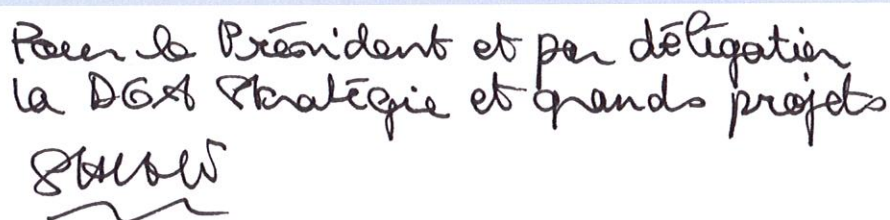 Pour le Président et par délégation
la DGA Stratégie et grands projets